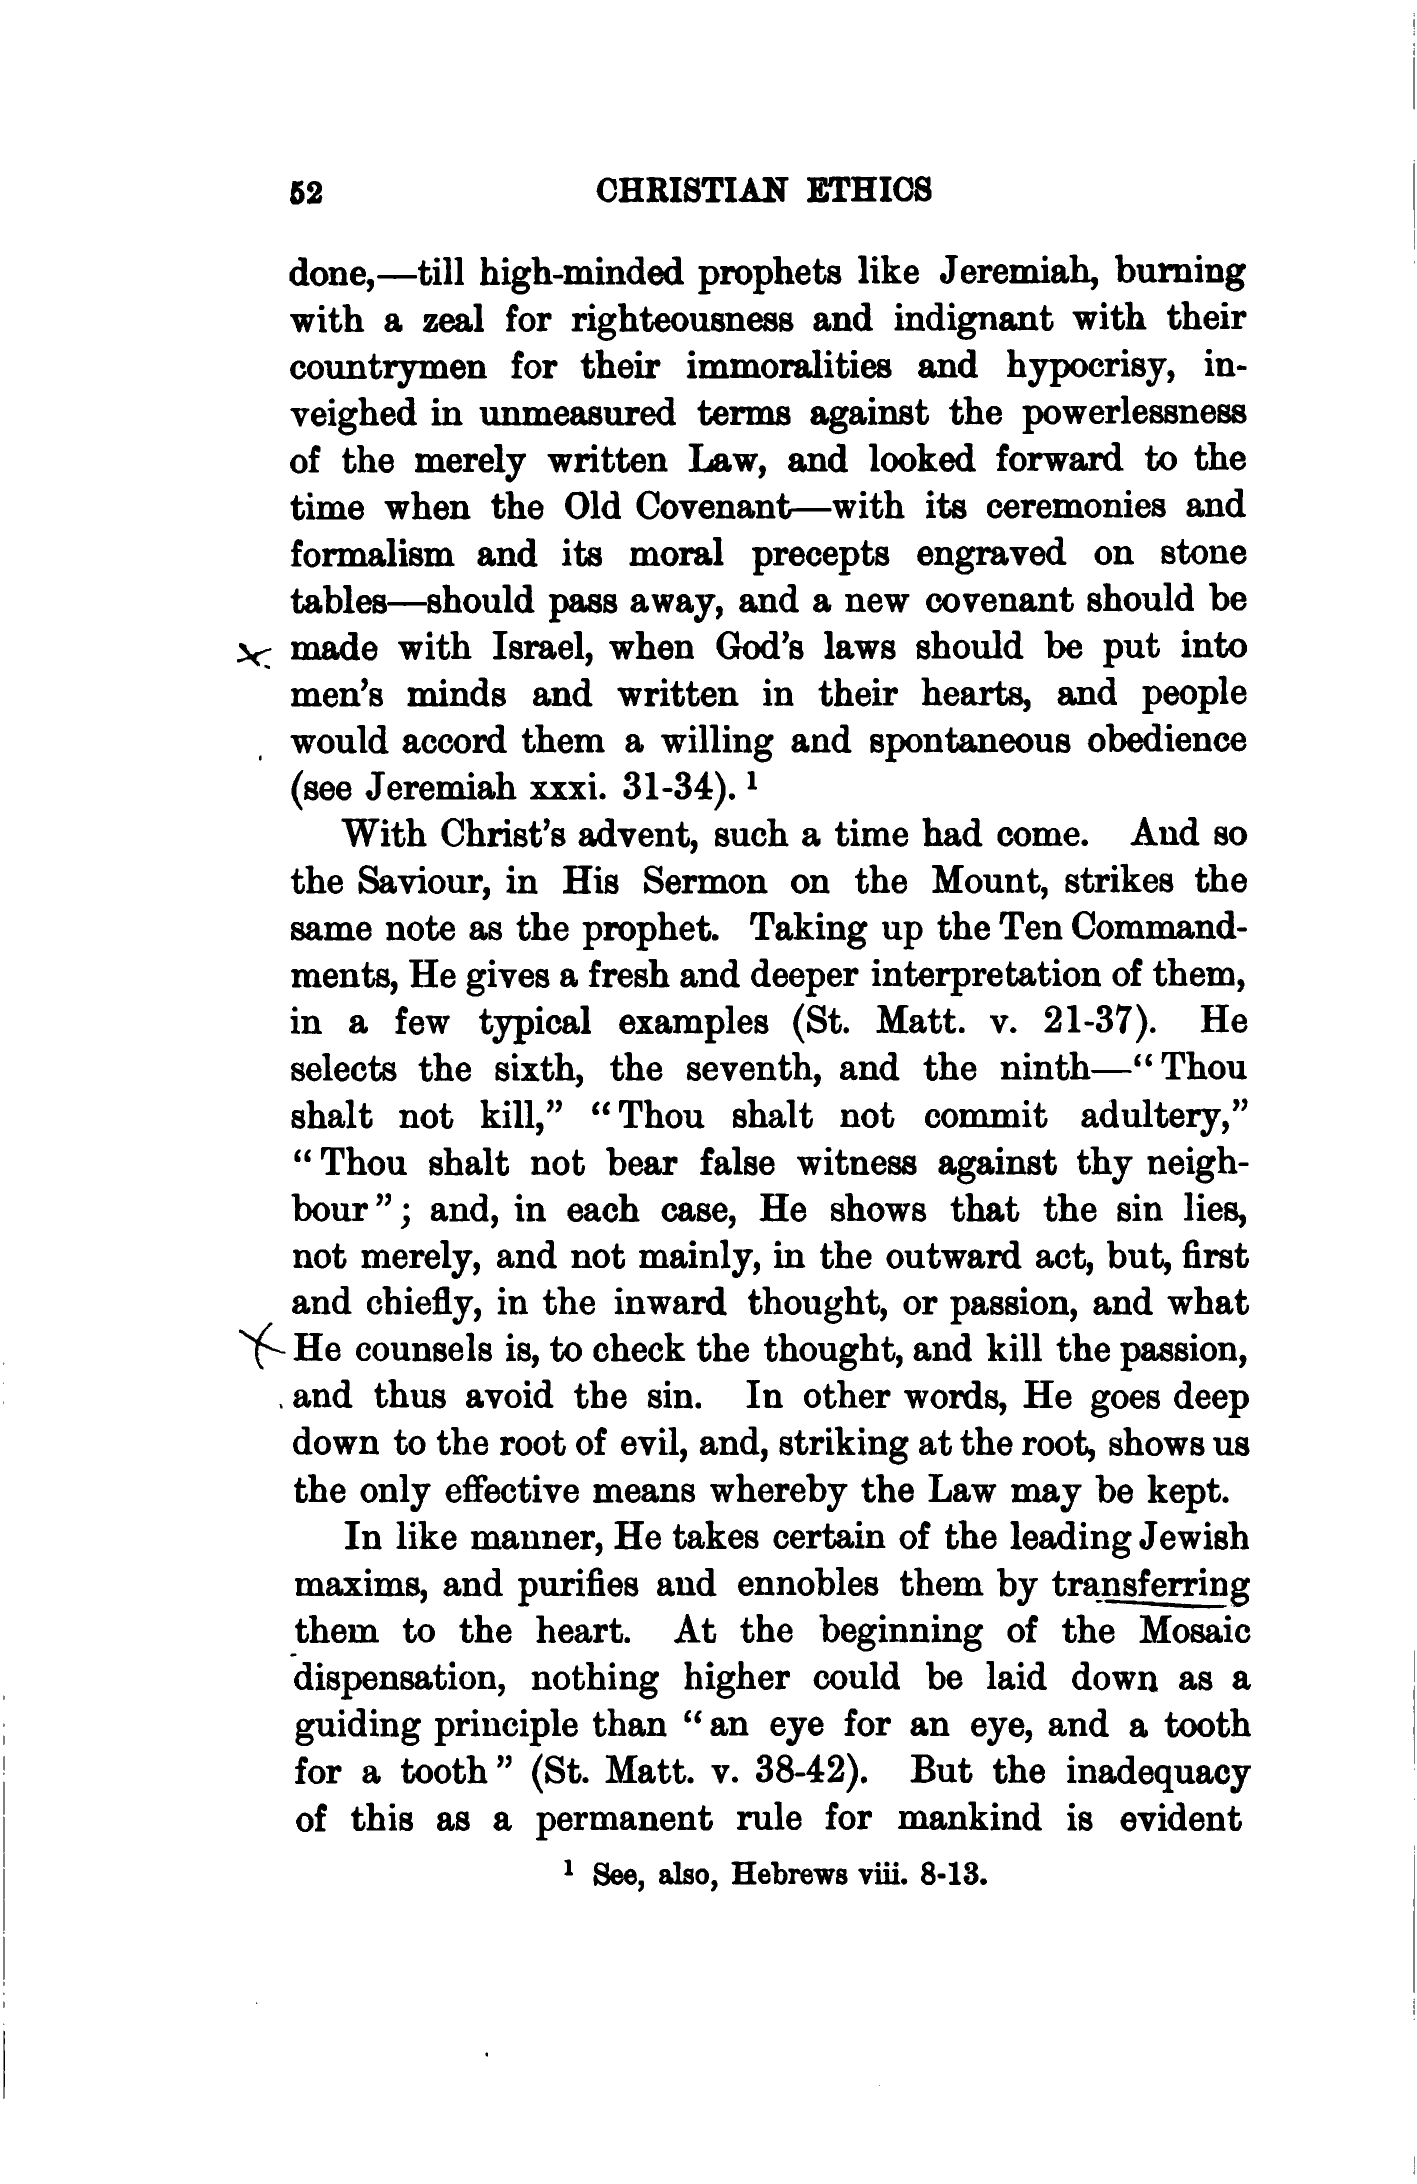 52 CHRISTIAN ETHICS
done,—till high-minded prophets like Jeremiah, burning
with a zeal for righteousness and indignant with their
countrymen for their immoralities and hypocrisy, in-
veighed in unmeasured terms against the powerlessness
of the merely written Law, and looked forward to the
time when the Old Covenant—with its ceremonies and
formalism and its moral precepts engraved on stone
tables—should pass away, and a new covenant should be
made with Israel, when God's laws should be put into
men's minds and written in their hearts, and people
would accord them a willing and spontaneous obedience
(see Jeremiah xxxi. 31-34). ¹
With Christ's advent, such a time had come. And so
the Saviour, in His Sermon on the Mount, strikes the
same note as the prophet. Taking up the Ten Command-
ments, He gives a fresh and deeper interpretation of them,
in a few typical examples (St. Matt. v. 21-37). He
selects the sixth, the seventh, and the ninth—“Thou
shalt not kill,” “Thou shalt not commit adultery,”
“Thou shalt not bear false witness against thy neigh-
bour”; and, in each case, He shows that the sin lies,
not merely, and not mainly, in the outward act, but, first
and chiefly, in the inward thought, or passion, and what
He counsels is, to check the thought, and kill the passion,
and thus avoid the sin. In other words, He goes deep
down to the root of evil, and, striking at the root, shows us
the only effective means whereby the Law may be kept.
In like manner, He takes certain of the leading Jewish
maxims, and purifies and ennobles them by transferring
them to the heart. At the beginning of the Mosaic
dispensation, nothing higher could be laid down as a
guiding principle than “an eye for an eye, and a tooth
for a tooth” (St. Matt. v. 38-42). But the inadequacy
of this as a permanent rule for mankind is evident
¹ See, also, Hebrews viii. 8-13.